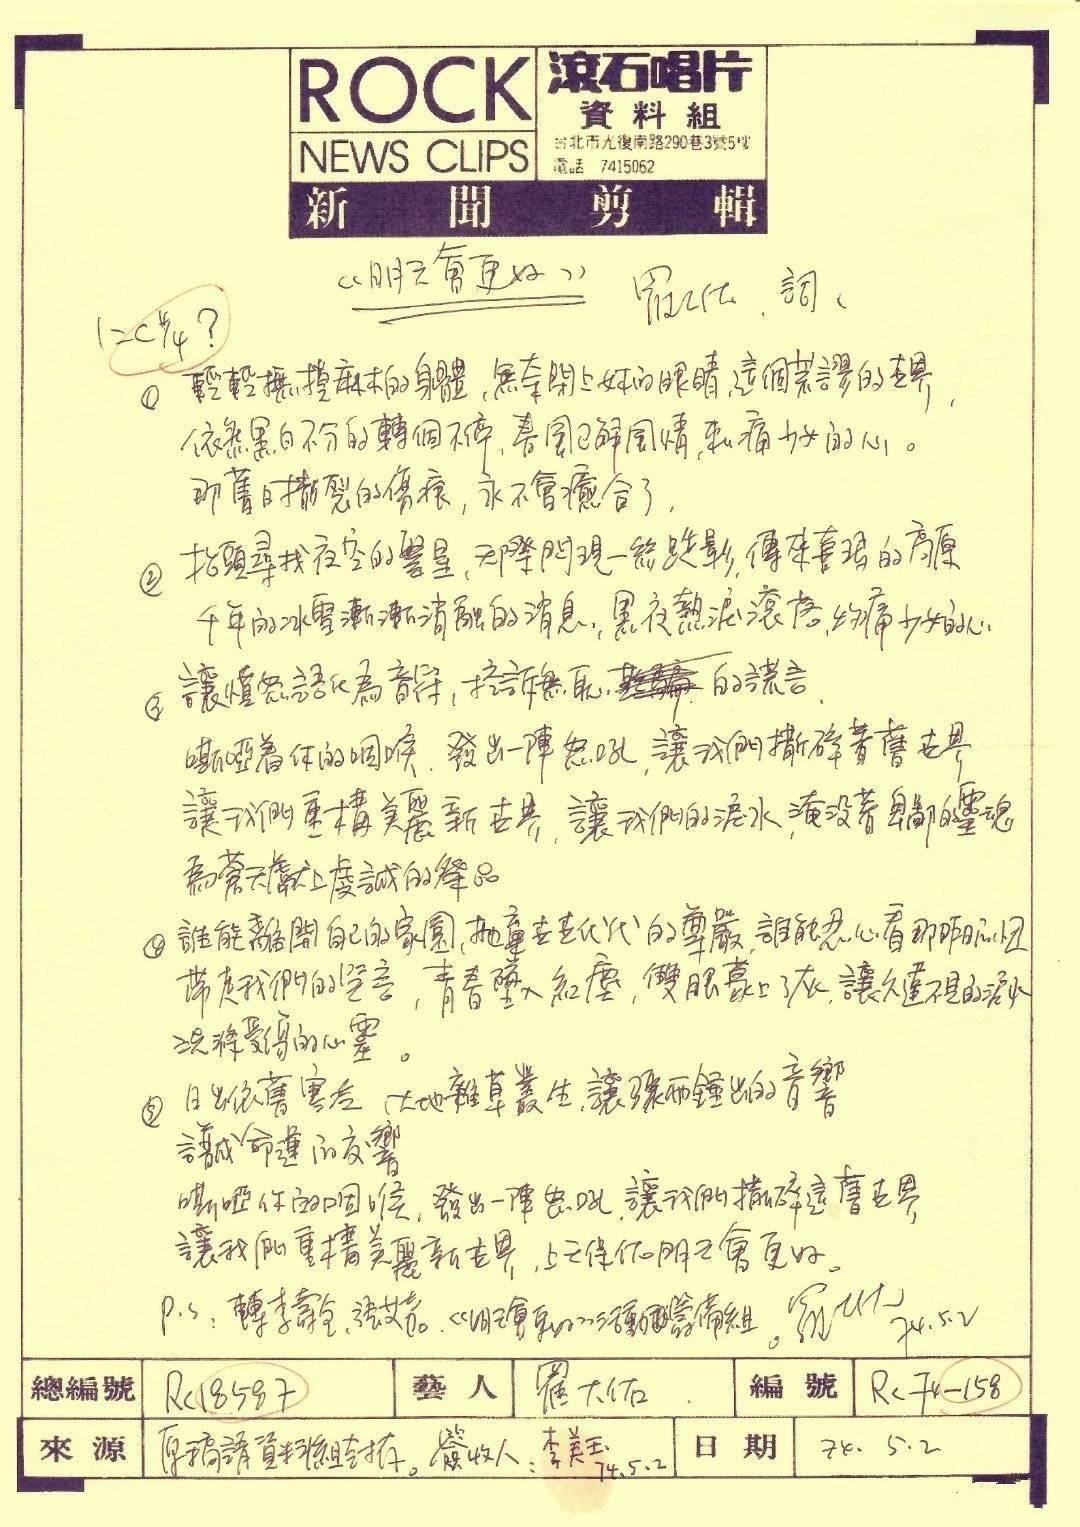 ROCK
NEWS CLIPS
滾石唱片
資料組
台北市光復南路290巷3號5樓
電話 7415062
新聞剪輯
《明天會更好》 羅大佑、詞、
1=C 4/4?
① 輕輕撫摸麻木的身體,無奈閉上妳的眼睛,這個荒謬的世界,
依然黑白不分的轉個不停,春風已解風情,刺痛少女的心。
那舊日撕裂的傷痕,永不會癒合了,
② 抬頭尋找夜空的繁星,天際閃現一絲跌影,傳來喜瑪的高原
千年的冰雪漸漸消融的消息,黑夜熱淚滾落,灼痛少女的心
③ 讓憤怒語化為音符,控訴無恥 的謊言
嘶啞著你的咽喉,發出一陣怒吼,讓我們撕碎著舊世界
讓我們重構美麗新世界,讓我們的淚水,淹沒著卑鄙的靈魂
為蒼天獻上虔誠的祭品
④ 誰能離開自己的家園,拋棄世世代代的尊嚴,誰能忍心看那昨日的
帶走我們的 ,青春墮入紅塵,雙眼蒙上了灰,讓久違不見的淚水
洗滌受傷的心靈。
⑤ 日出依舊寒冷,大地雜草叢生,讓 的音響
譜成命運的交響
嘶啞你的咽喉,發出一陣怒吼,讓我們撕碎這舊世界
讓我們重構美麗新世界,上天保佑明天會更好。
P.S:轉李壽全,張艾嘉。《明天會更好》活動籌備組。羅大佑 74.5.2
總編號 Rc18587 藝人 羅大佑. 編號 Rc74-158
來源 原稿請資料組封存。簽收人:李美玉 74.5.2 日期 74. 5. 2